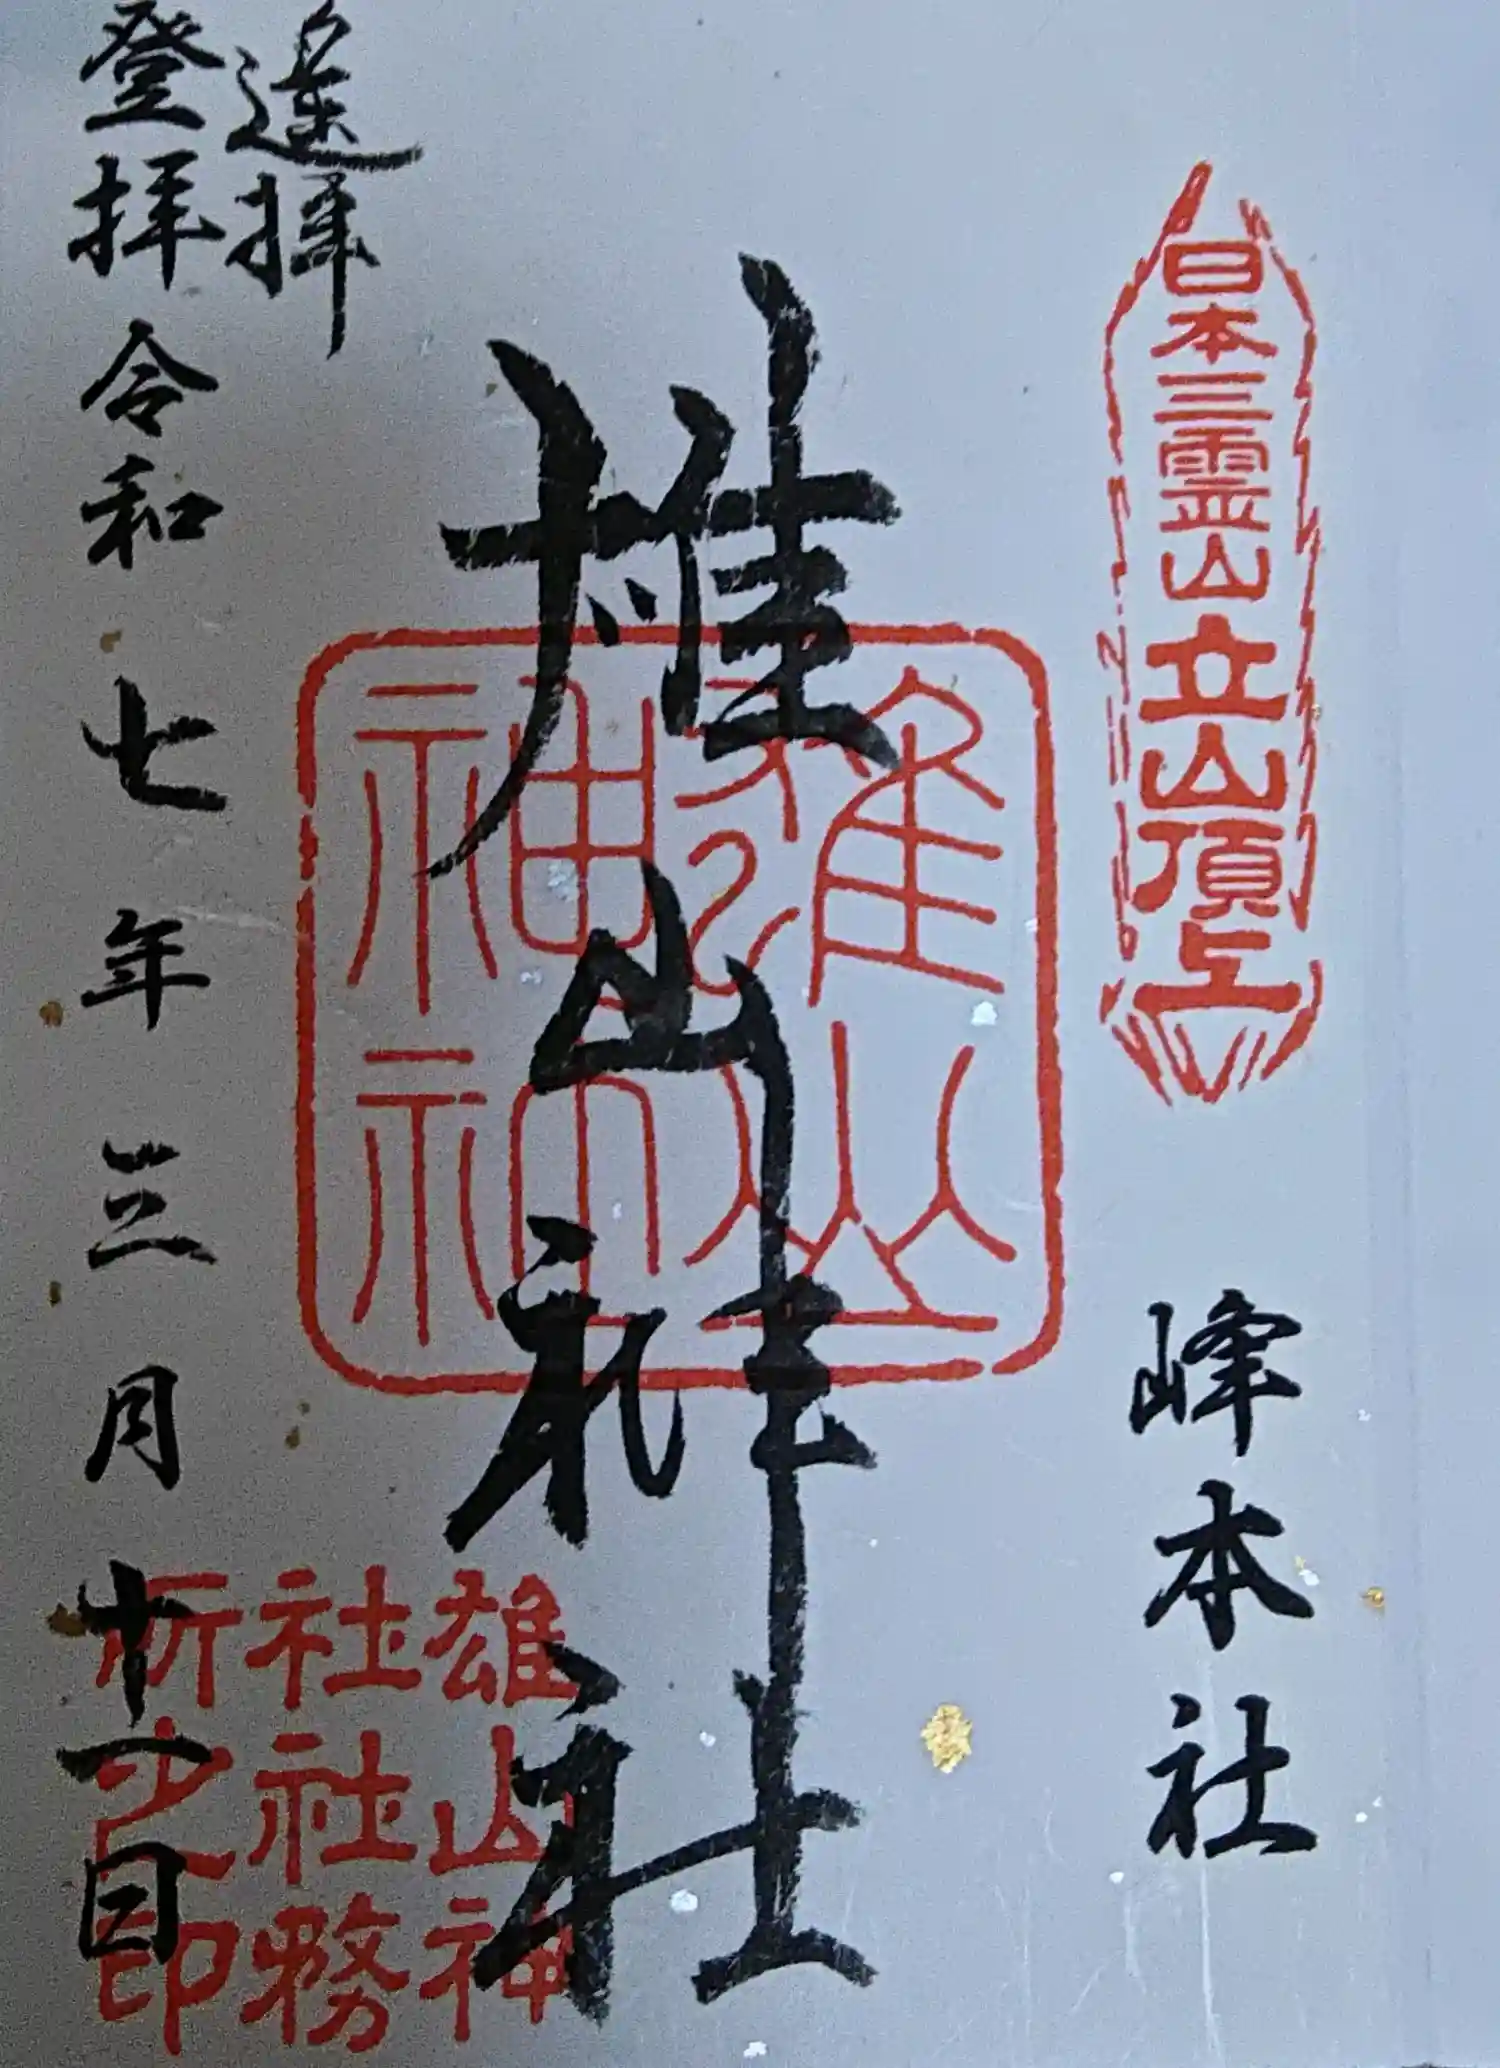 日本三霊山立山頂上
峰本社
雄山神社
雄山神社
雄山神
社社務
所之印
遥拝
登拝令和七年三月十一日